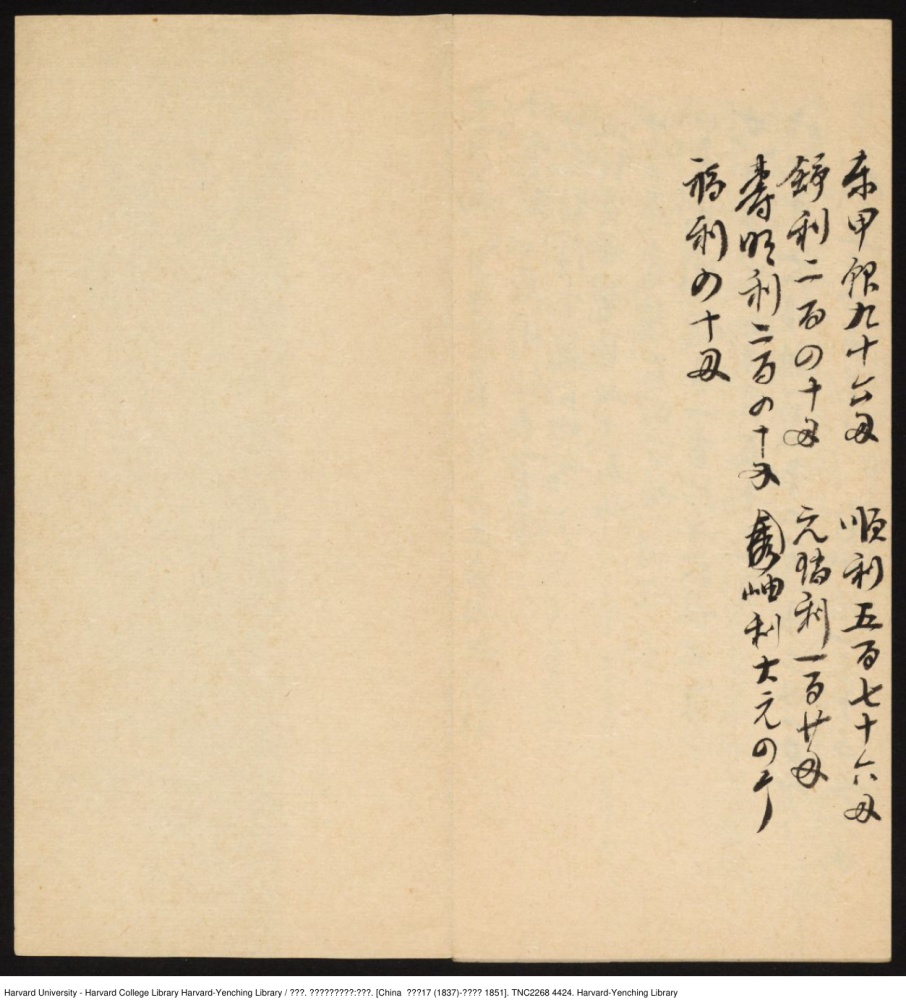 東甲銀九十六毋 順利五百七十六毋
錚利二百四十毋 元瑞利一百廿毋
壽明利二百四十毋 岫利大元四
福利四十毋
Harvard University - Harvard College Library Harvard-Yenching Library / ???. ?????????:???. [China ???17 (1837)-???? 1851]. TNC2268 4424. Harvard-Yenching Library